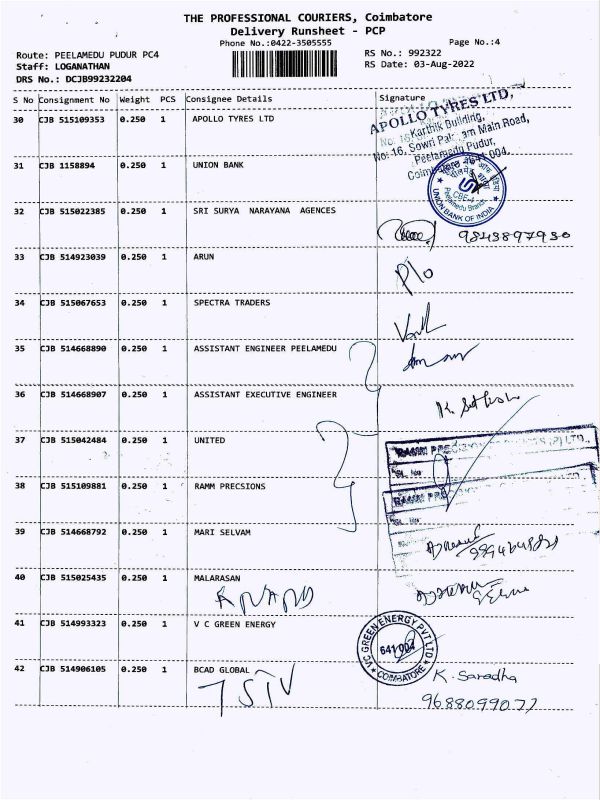 THE PROFESSIONAL COURIERS, Coimbatore
Delivery Runsheet - PCP
Phone No.:0422-3505555
Page No.:4
Route: PEELAMEDU PUDUR PC4
RS No.: 992322
Staff: LOGANATHAN
RS Date: 03-Aug-2022
DRS No.: DCJB99232204
S No Consignment No Weight PCS Consignee Details Signature
30 CJB 515109353 0.250 1 APOLLO TYRES LTD
APOLLO TYRES LTD,
Karthik Building,
No: 16, Sowri Main Road,
Peelamedu Pudur,
004.
31 CJB 1158894 0.250 1 UNION BANK
CBE-4
Peelamedu Branch
UNION BANK OF INDIA
32 CJB 515022385 0.250 1 SRI SURYA NARAYANA AGENCES
9843897930
33 CJB 514923039 0.250 1 ARUN
P/o
34 CJB 515067653 0.250 1 SPECTRA TRADERS
35 CJB 514668890 0.250 1 ASSISTANT ENGINEER PEELAMEDU
36 CJB 514668907 0.250 1 ASSISTANT EXECUTIVE ENGINEER
37 CJB 515042484 0.250 1 UNITED
RAMM (P) LTD.,
38 CJB 515109881 0.250 1 RAMM PRECSIONS
RAMM
39 CJB 514668792 0.250 1 MARI SELVAM
40 CJB 515025435 0.250 1 MALARASAN
ANAND
41 CJB 514993323 0.250 1 V C GREEN ENERGY
V.C. GREEN ENERGY PVT LTD
641 004
COIMBATORE
42 CJB 514906105 0.250 1 BCAD GLOBAL
K. Saradha